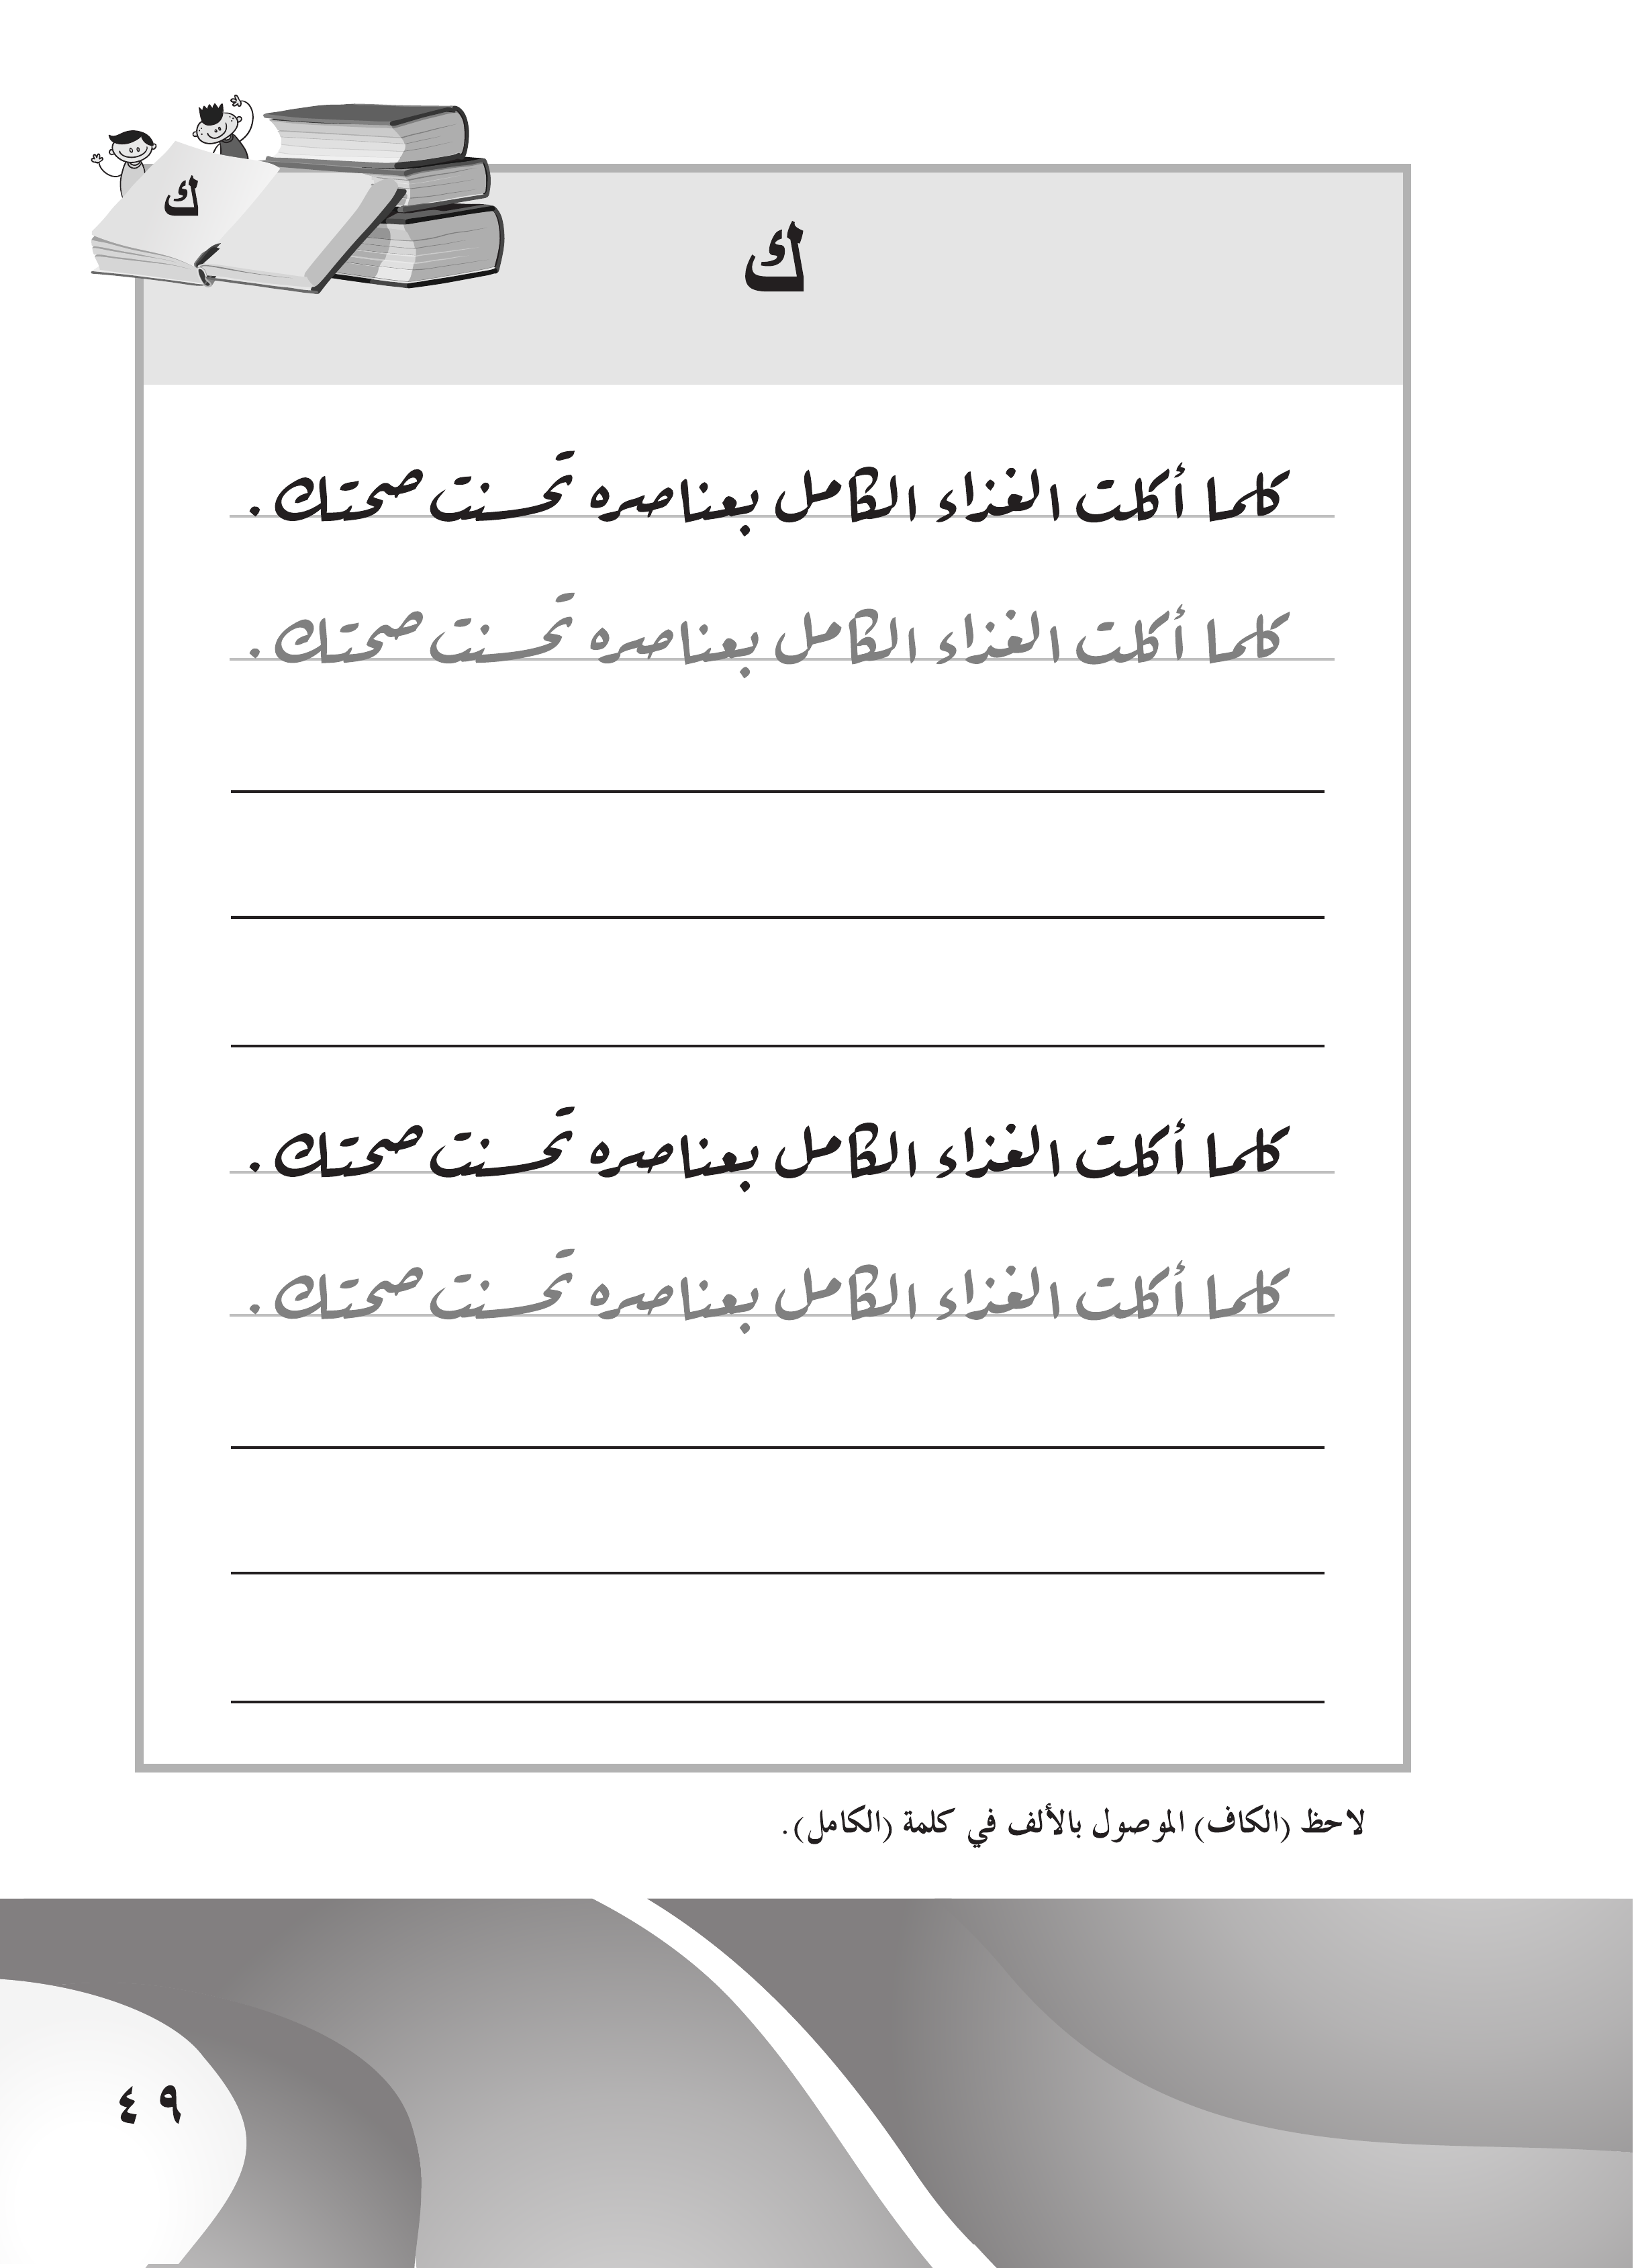 ك
ك
كلما أكلت الغذاء الكامل بعناصره تحسنت صحتك.
كلما أكلت الغذاء الكامل بعناصره تحسنت صحتك.
كلما أكلت الغذاء الكامل بعناصره تحسنت صحتك.
كلما أكلت الغذاء الكامل بعناصره تحسنت صحتك.
لاحظ (الكاف) الموصول بالألف في كلمة (الكامل).
٤٩